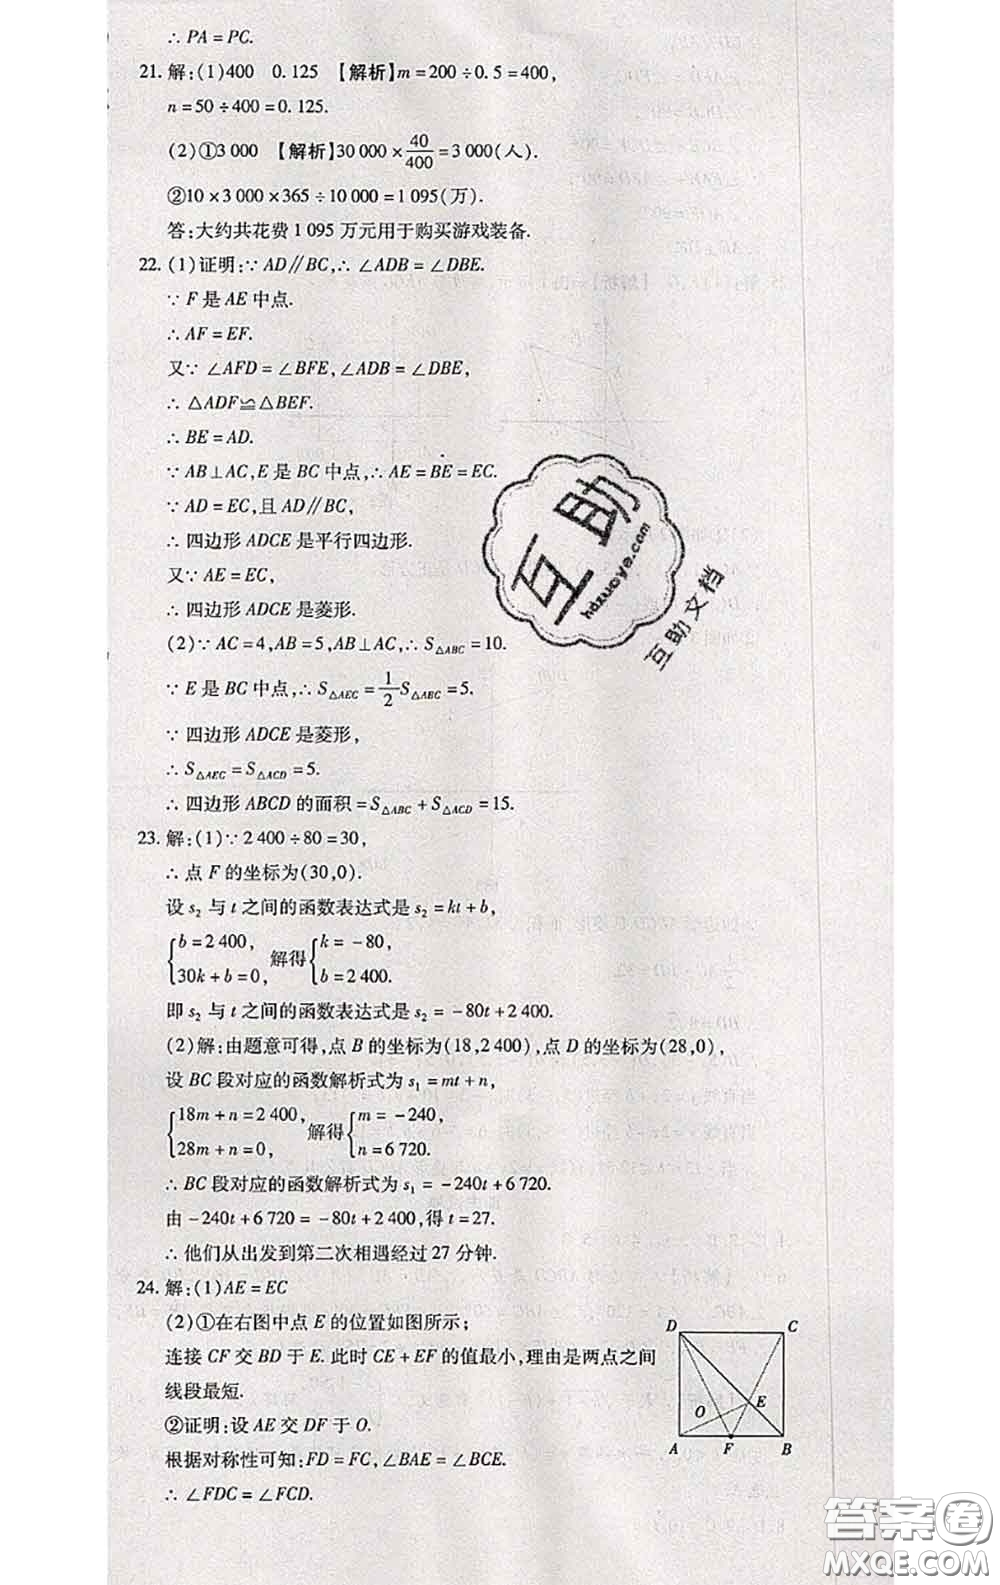 ∴ PA = PC.
21. 解:(1)400 0.125 【解析】m = 200 ÷ 0.5 = 400,
n = 50 ÷ 400 = 0.125.
(2)①3 000 【解析】30 000 × 40/400 = 3 000(人).
②10 × 3 000 × 365 ÷ 10 000 = 1 095(万).
答:大约共花费 1 095 万元用于购买游戏装备.
22. (1)证明:∵ AD∥BC,∴ ∠ADB = ∠DBE.
∵ F 是 AE 中点.
∴ AF = EF.
又∵ ∠AFD = ∠BFE,∠ADB = ∠DBE,
∴ △ADF≌△BEF.
∴ BE = AD.
∵ AB⊥AC,E 是 BC 中点,∴ AE = BE = EC.
∵ AD = EC,且 AD∥BC,
∴ 四边形 ADCE 是平行四边形.
又∵ AE = EC,
∴ 四边形 ADCE 是菱形.
(2)∵ AC = 4,AB = 5,AB⊥AC,∴ S△ABC = 10.
∵ E 是 BC 中点,∴ S△AEC = 1/2 S△ABC = 5.
∵ 四边形 ADCE 是菱形,
∴ S△AEC = S△ACD = 5.
∴ 四边形 ABCD 的面积 = S△ABC + S△ACD = 15.
23. 解:(1)∵ 2 400 ÷ 80 = 30,
∴ 点 F 的坐标为(30,0).
设 s₂ 与 t 之间的函数表达式是 s₂ = kt + b,
{b = 2 400, 30k + b = 0, 解得 {k = −80, b = 2 400.
即 s₂ 与 t 之间的函数表达式是 s₂ = −80t + 2 400.
(2)解:由题意可得,点 B 的坐标为(18,2 400),点 D 的坐标为(28,0),
设 BC 段对应的函数解析式为 s₁ = mt + n,
{18m + n = 2 400, 28m + n = 0, 解得 {m = −240, n = 6 720.
∴ BC 段对应的函数解析式为 s₁ = −240t + 6 720.
由 −240t + 6 720 = −80t + 2 400,得 t = 27.
∴ 他们从出发到第二次相遇经过 27 分钟.
24. 解:(1)AE = EC
(2)①在右图中点 E 的位置如图所示;
连接 CF 交 BD 于 E. 此时 CE + EF 的值最小,理由是两点之间
线段最短.
②证明:设 AE 交 DF 于 O.
根据对称性可知:FD = FC,∠BAE = ∠BCE.
∴ ∠FDC = ∠FCD.
D C
O E
A F B
互助
hdzuoye.com
互助文档
答案圈
MXQE.COM